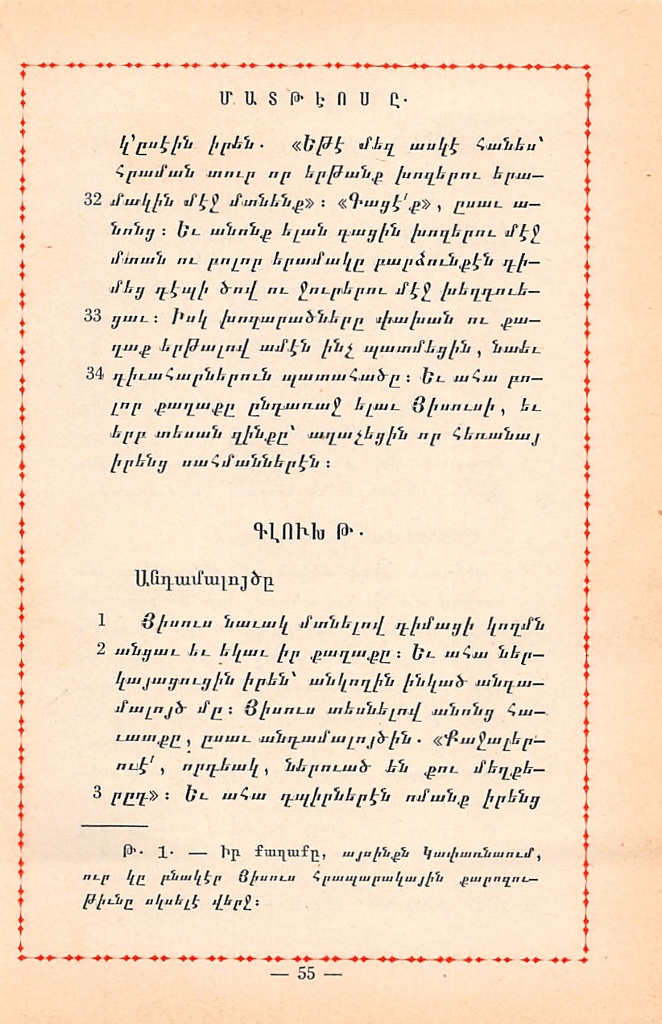 ՄԱՏԹԷՈՍ Ը.
կ՚ըսէին իրեն. «Եթէ մեզ ասկէ հանես՝
հրաման տուր որ երթանք խոզերու երա—
32 մակին մէջ մտնենք»: «Գացէ՛ք», ըսաւ ա—
նոնց: Եւ անոնք ելան գացին խոզերու մէջ
մտան ու բոլոր երամակը բարձունքէն դի—
մեց դէպի ծով ու ջուրերու մէջ խեղդուե—
33 ցաւ: Իսկ խոզարածները փախան ու քա—
ղաք երթալով ամէն ինչ պատմեցին, նաեւ
34 դիւահարներուն պատահածը: Եւ ահա բո—
լոր քաղաքը ընդառաջ ելաւ Յիսուսի, եւ
երբ տեսան զինքը՝ աղաչեցին որ հեռանայ
իրենց սահմաններէն:
ԳԼՈՒԽ Թ.
Անդամալոյծը
1 Յիսուս նաւակ մտնելով դիմացի կողմն
2 անցաւ եւ եկաւ իր քաղաքը: Եւ ահա ներ—
կայացուցին իրեն՝ անկողին ինկած անդա—
մալոյծ մը: Յիսուս տեսնելով անոնց հա—
ւատքը, ըսաւ անդամալոյծին. «Քաջալեր—
ուէ՛, որդեակ, ներուած են քու մեղքե—
3 րըդ»: Եւ ահա դպիրներէն ոմանք իրենց
Թ. 1. — Իր քաղաքը, այսինքն Կափառնաում,
ուր կը բնակէր Յիսուս Հրապարակային քարոզու—
թիւնը սկսելէ վերջ:
— 55 —